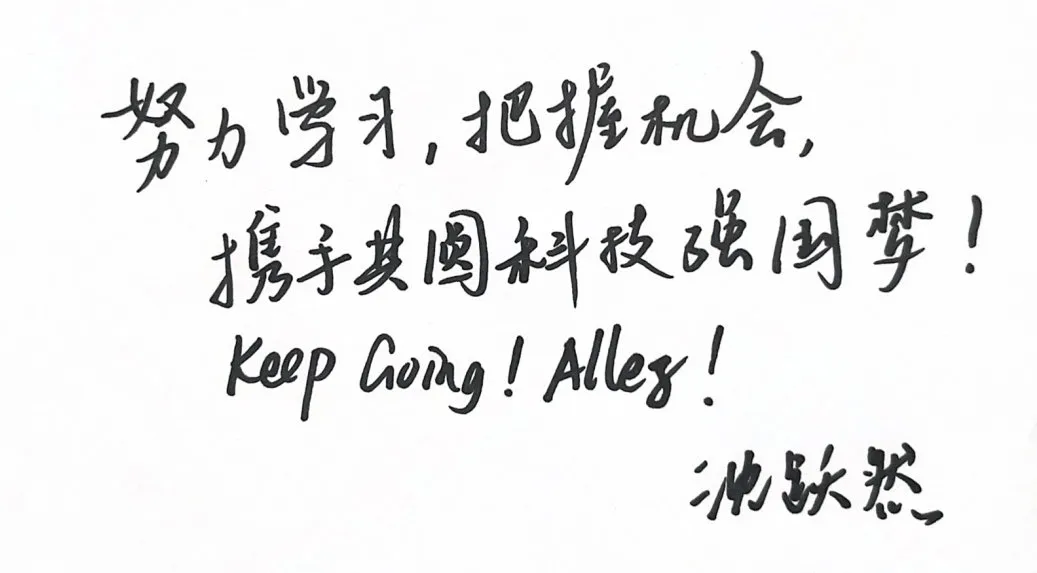 努力学习,把握机会,
携手共圆科技强国梦!
Keep Going! Allez!
沈跃然